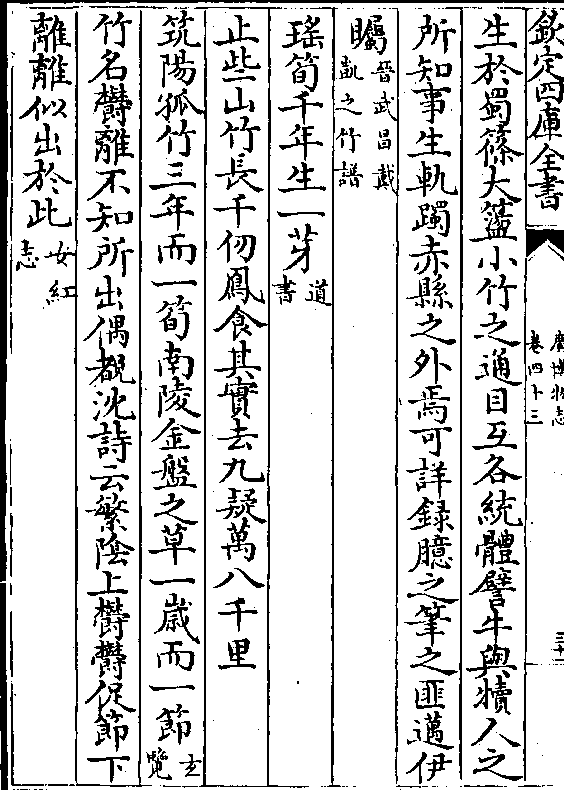 欽定四庫全書
廣博物志
卷四十三
三十二
生於蜀篠大簜小竹之通目互各統體譬牛與犢人之
所知事生軌躅赤縣之外焉可詳録臆之筆之匪邁伊
矚晉武昌戴
凱之竹譜
瑶筍千年生一芽道
書
止些山竹長千仞鳳食其實去九疑萬八千里
筑陽孤竹三年而一筍南陵金盤之草一嵗而一節玄
覽
竹名欝離不知所出偶覩沈詩云繁陰上欝欝促節下
離離似出於此女紅
志